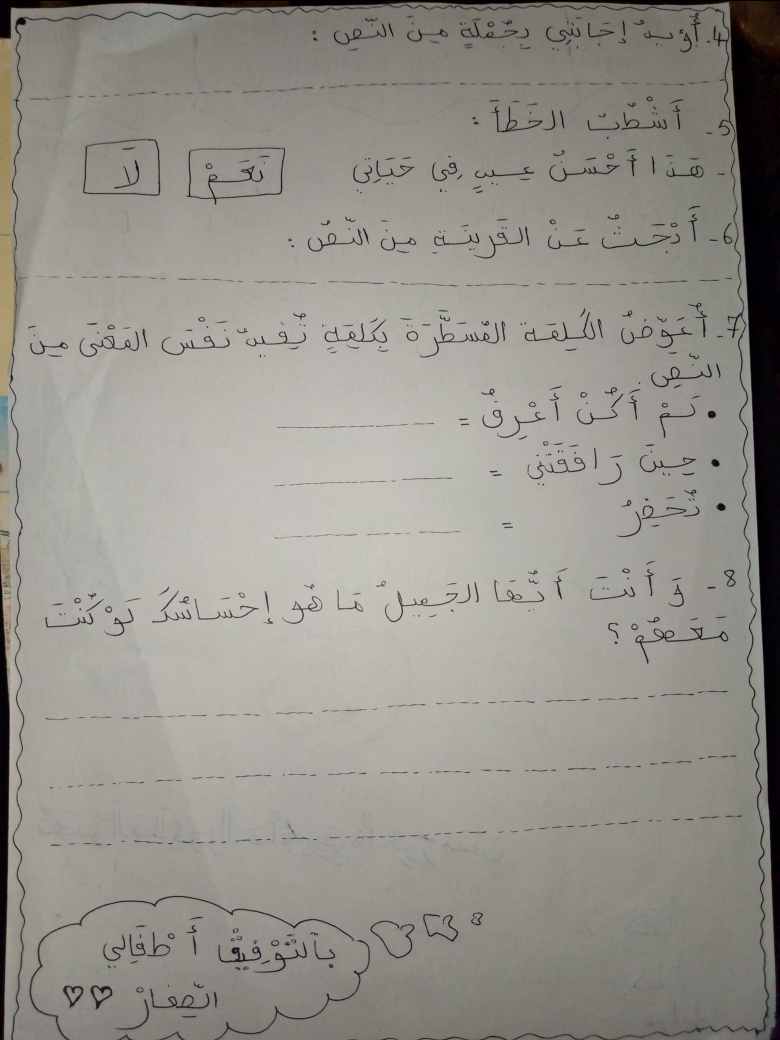 4. أُؤيدُ إجَابَتِي بِجُمْلَةٍ مِنَ النّصِ :
5- أَشْطُبُ الخَطَأَ :
- هَذَا أَحْسَنُ عِيدٍ فِي حَيَاتِي نَعَمْ لَا
6- أَبْحَثُ عَنْ القَرِينَةِ مِنَ النّصِّ :
7- أُعَوِّضُ الكَلِمَة المُسَطَّرَةَ بِكَلِمَةٍ تُفِيدُ نَفْسَ المَعْنَى مِنَ
النّصِّ.
• لَمْ أَكُنْ أَعْرِفُ =
• حِينَ رَافَقَتْنِي =
• تُحَضِرُ =
8- وَ أَنْتَ أَيُّهَا الجَمِيلُ مَا هُو إحْسَاسُكَ لَوْ كُنْتَ
مَعَهُمْ ؟
بِالتَّوْفِيقْ أَطْفَالِي
الصِّغَارْ